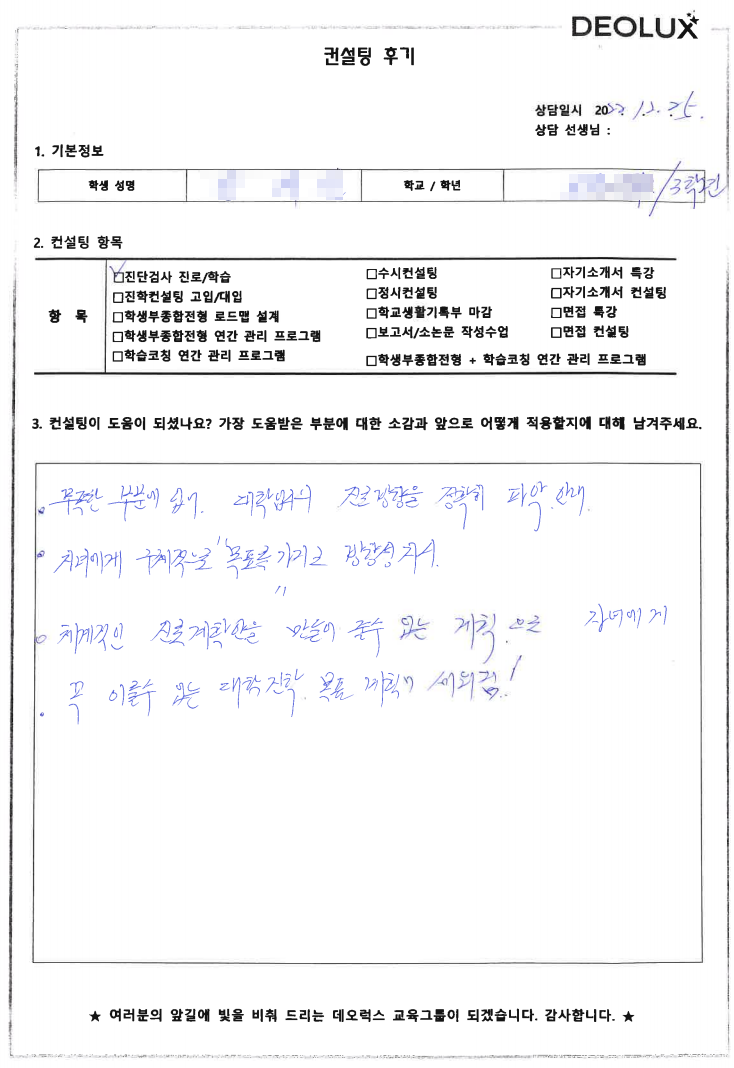 DEOLUX
컨설팅 후기
상담일시 2022. 12. 25.
상담 선생님 :
1. 기본정보
학생 성명 학교 / 학년 / 3학년
2. 컨설팅 항목
항 목
☑진단검사 진로/학습 □수시컨설팅 □자기소개서 특강
□진학컨설팅 고입/대입 □정시컨설팅 □자기소개서 컨설팅
□학생부종합전형 로드맵 설계 □학교생활기록부 마감 □면접 특강
□학생부종합전형 연간 관리 프로그램 □보고서/소논문 작성수업 □면접 컨설팅
□학습코칭 연간 관리 프로그램 □학생부종합전형 + 학습코칭 연간 관리 프로그램
3. 컨설팅이 도움이 되셨나요? 가장 도움받은 부분에 대한 소감과 앞으로 어떻게 적용할지에 대해 남겨주세요.
• 부족한 부분에 있어. 대학입시의 진로방향을 정확히 파악. 안내.
• 자녀에게 구체적으로 "목표를 가지고 방향성 제시.
"
○ 체계적인 진로계획안을 만들어 줄수 있는 계획.으로 자녀에게
• 꼭 이룰수 있는 대학진학. 목표 계획이 세워짐.!
★ 여러분의 앞길에 빛을 비춰 드리는 데오럭스 교육그룹이 되겠습니다. 감사합니다. ★